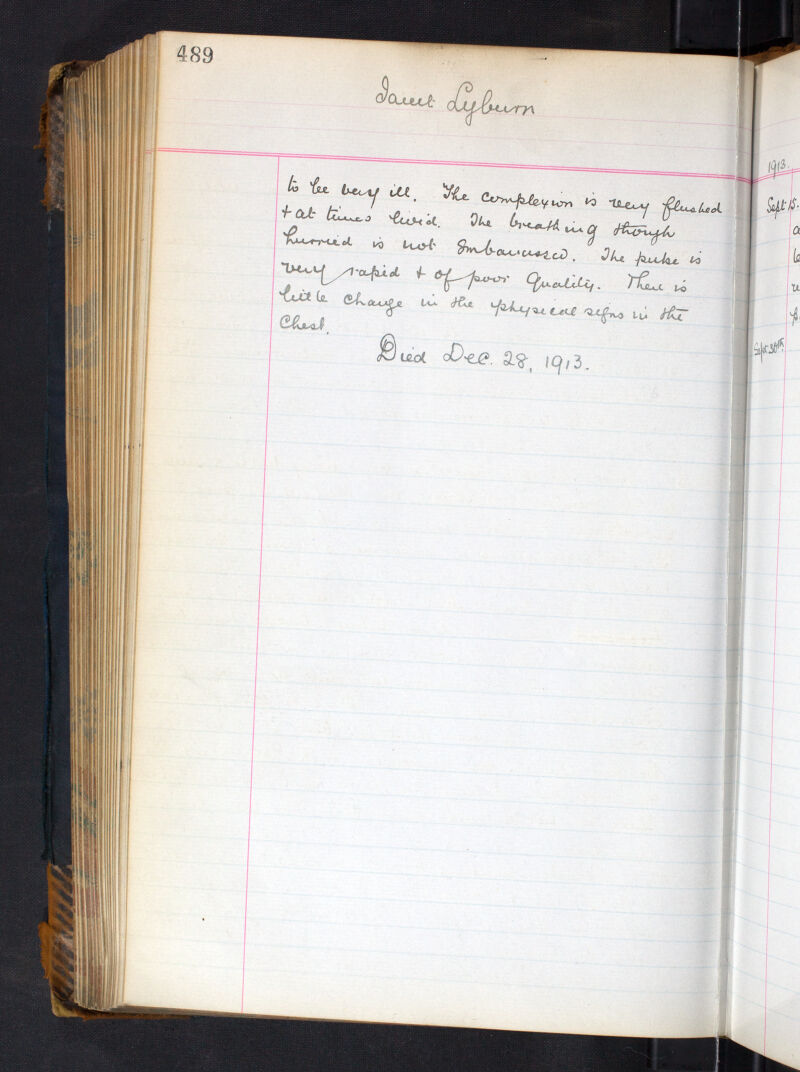 489
Janet Lyburn
to be very ill. The complexion is very flushed
+ at times livid. The breathing though
hurried is not Embarrassed. The pulse is
very rapid + of poor Quality. There is
little change in the physical signs in the
Chest.
Died Dec. 28, 1913.
1913.
Sept 15.
Sept. 30th.